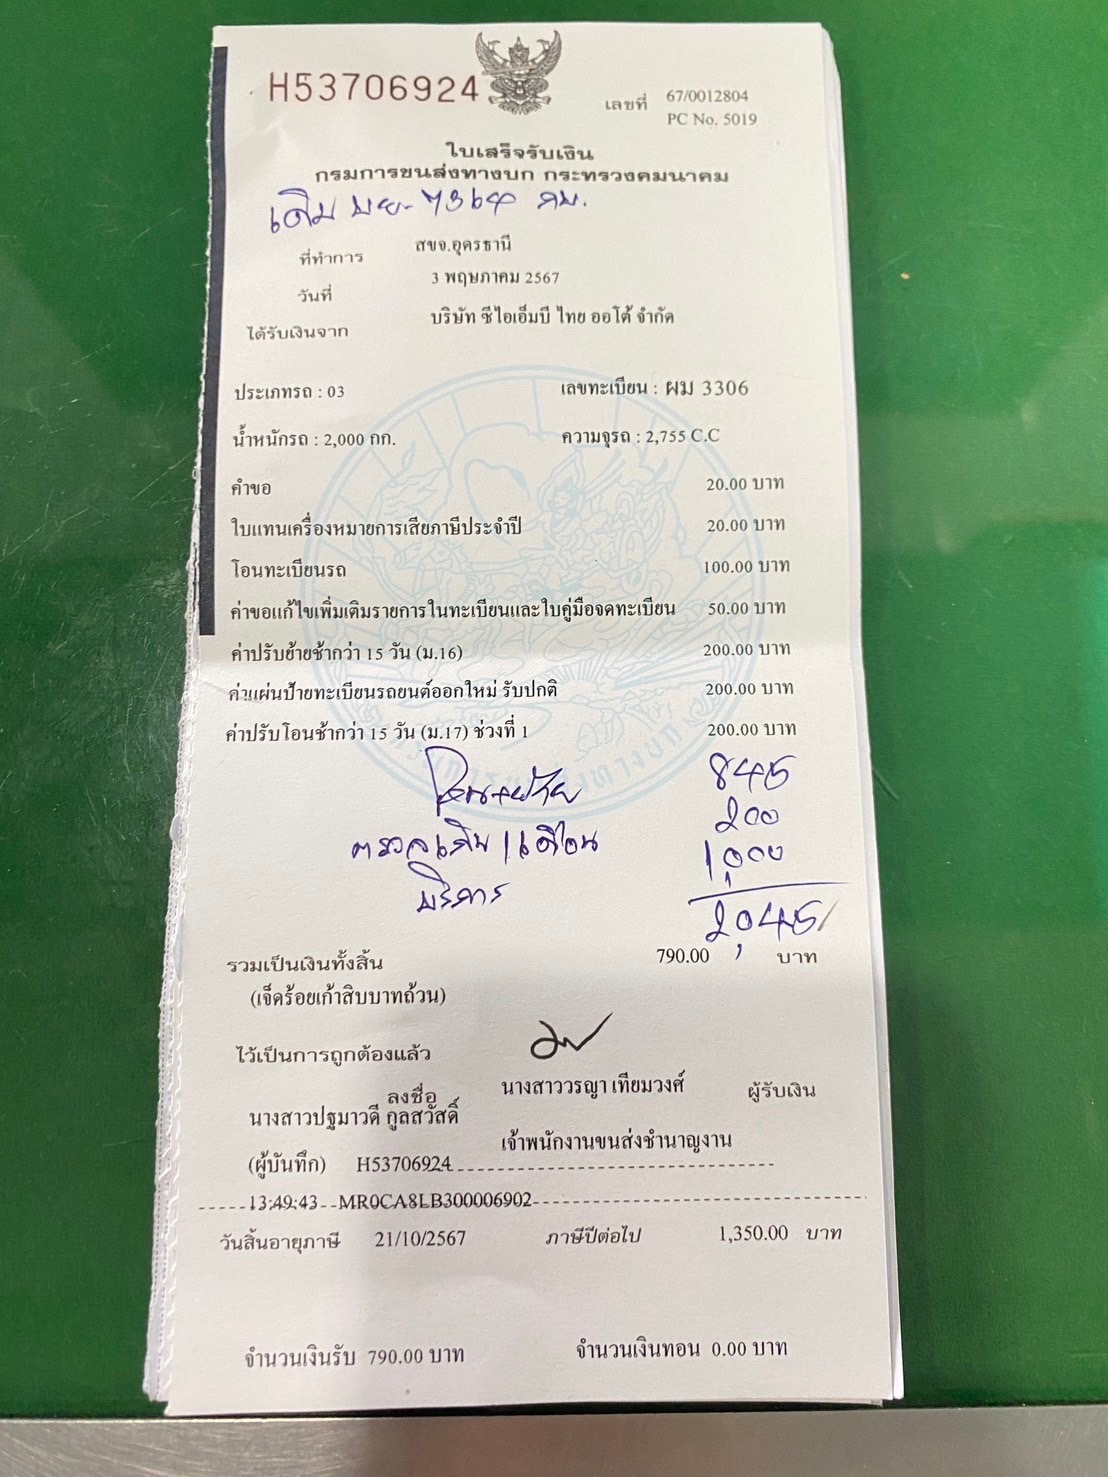 H53706924
เลขที่ 67/0012804
PC No. 5019
ใบเสร็จรับเงิน
กรมการขนส่งทางบก กระทรวงคมนาคม
เดิม 7364
ที่ทำการ สขจ.อุดรธานี
วันที่ 3 พฤษภาคม 2567
ได้รับเงินจาก บริษัท ซีไอเอ็มบี ไทย ออโต้ จำกัด
ประเภทรถ : 03 เลขทะเบียน : ผม 3306
น้ำหนักรถ : 2,000 กก. ความจุรถ : 2,755 C.C
คำขอ 20.00 บาท
ใบแทนเครื่องหมายการเสียภาษีประจำปี 20.00 บาท
โอนทะเบียนรถ 100.00 บาท
ค่าขอแก้ไขเพิ่มเติมรายการในทะเบียนและใบคู่มือจดทะเบียน 50.00 บาท
ค่าปรับย้ายช้ากว่า 15 วัน (ม.16) 200.00 บาท
ค่าแผ่นป้ายทะเบียนรถยนต์ออกใหม่ รับปกติ 200.00 บาท
ค่าปรับโอนช้ากว่า 15 วัน (ม.17) ช่วงที่ 1 200.00 บาท
845
200
บริการ 1,000
2,045
รวมเป็นเงินทั้งสิ้น 790.00 บาท
(เจ็ดร้อยเก้าสิบบาทถ้วน)
ไว้เป็นการถูกต้องแล้ว
ลงชื่อ นางสาววรญา เทียมวงศ์ ผู้รับเงิน
นางสาวปฐมาวดี กูลสวัสดิ์
เจ้าพนักงานขนส่งชำนาญงาน
(ผู้บันทึก) H53706924
13:49:43 MR0CA8LB300006902
วันสิ้นอายุภาษี 21/10/2567 ภาษีปีต่อไป 1,350.00 บาท
จำนวนเงินรับ 790.00 บาท จำนวนเงินทอน 0.00 บาท